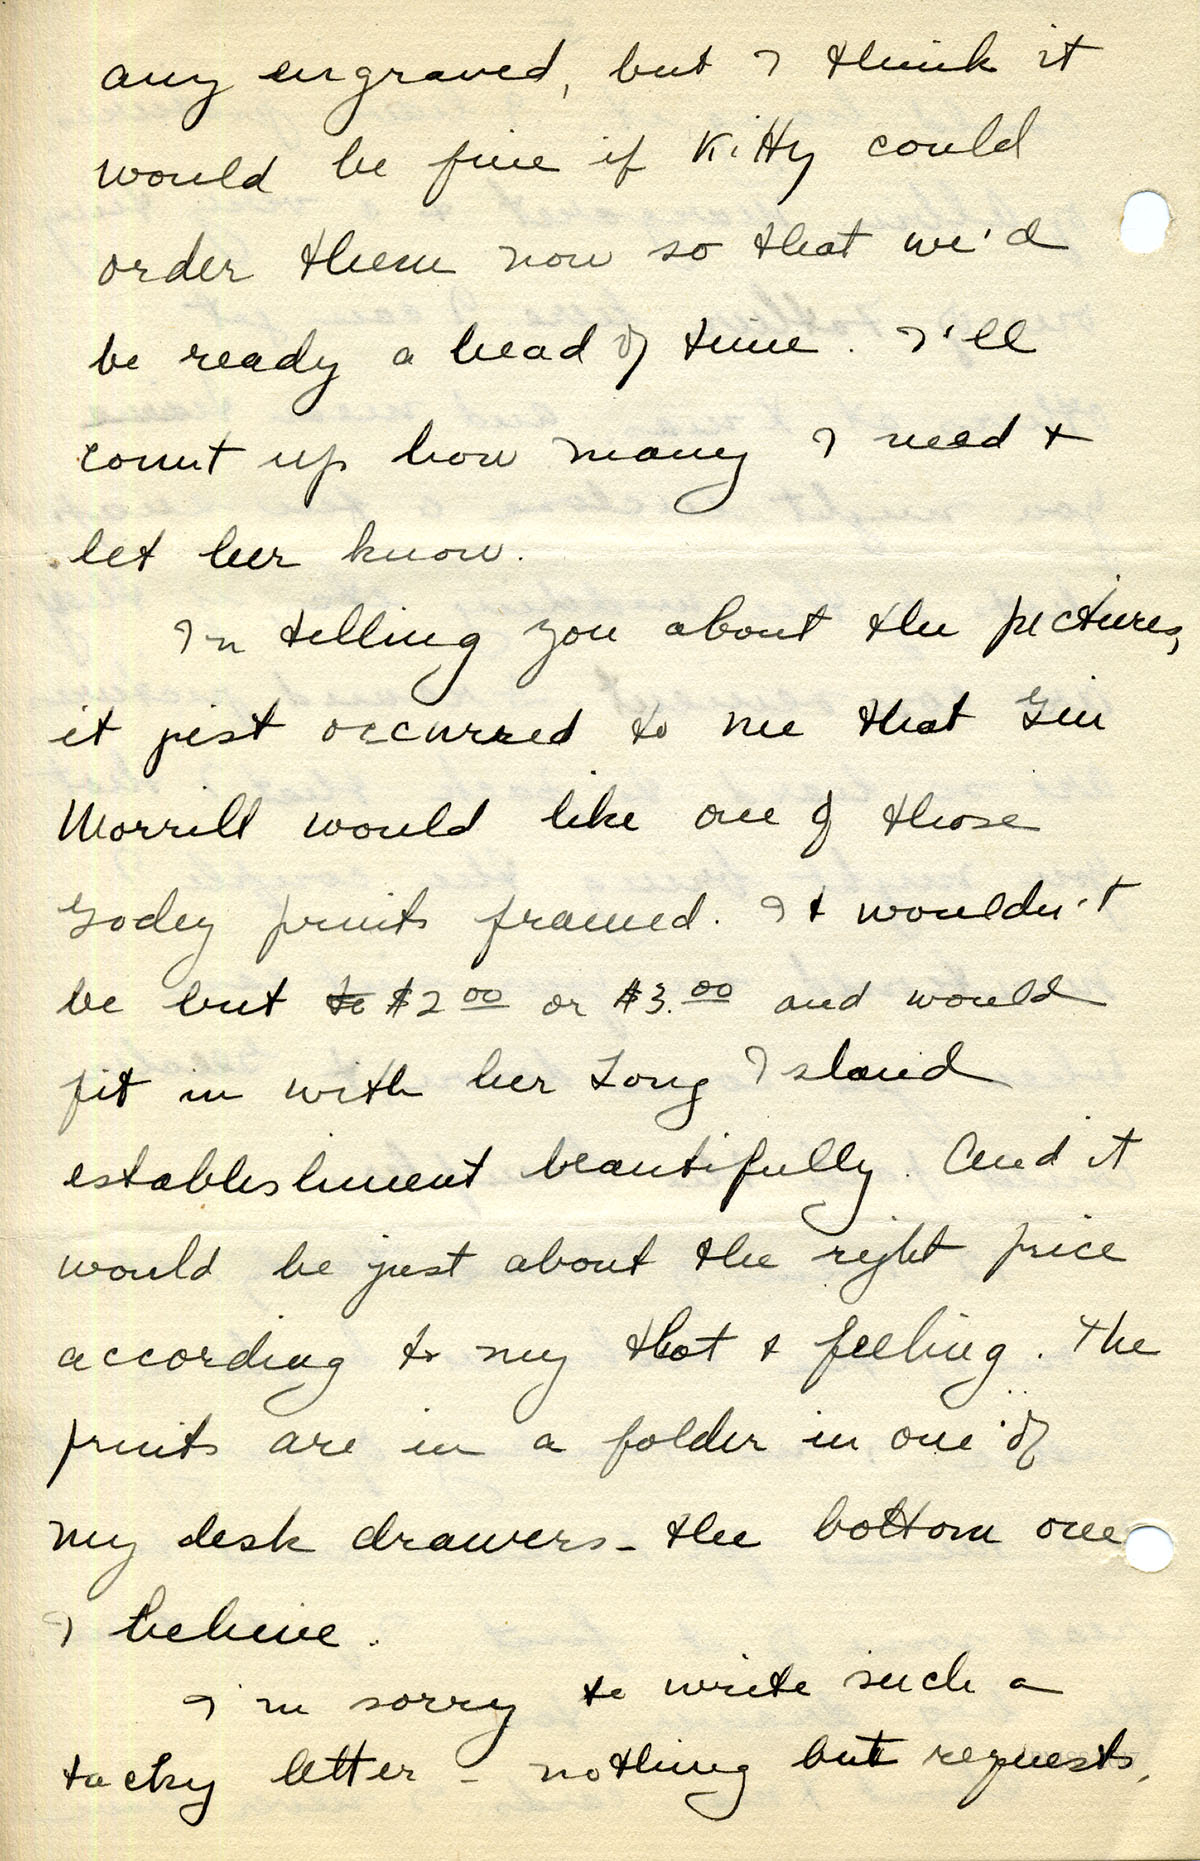 any engraved, but I think it
would be fine if Kitty could
order them now so that we'd
be ready a head of time. I'll
count up how many I need &
let her know.
In telling you about the pictures,
it just occurred to me that Gin
Morrill would like one of those
Godey prints framed. It wouldn't
be but to $2 00 or $3.00 and would
fit in with her Long Island
establishment beautifully. And it
would be just about the right price
according to my thot & feeling. The
prints are in a folder in one of
my desk drawers - the bottom one
I believe.
I'm sorry to write such a
tacky letter - nothing but requests,